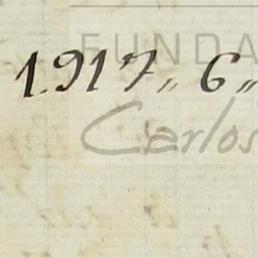 FUNDA
1.917,, 6,,
Carlos